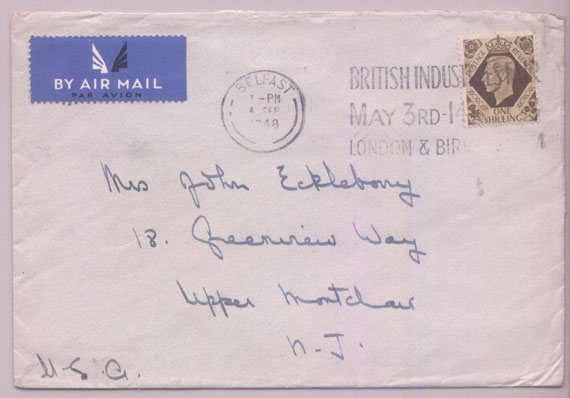 BY AIR MAIL
PAR AVION
BELFAST
1-PM
4 SEP
1948
BRITISH INDUS
MAY 3RD-14
LONDON & BIR
POSTAGE REVENUE
ONE
SHILLING
Mrs John Ecklebony
18. Greenview Way
Upper Montclair
N-J.
U-S.A.